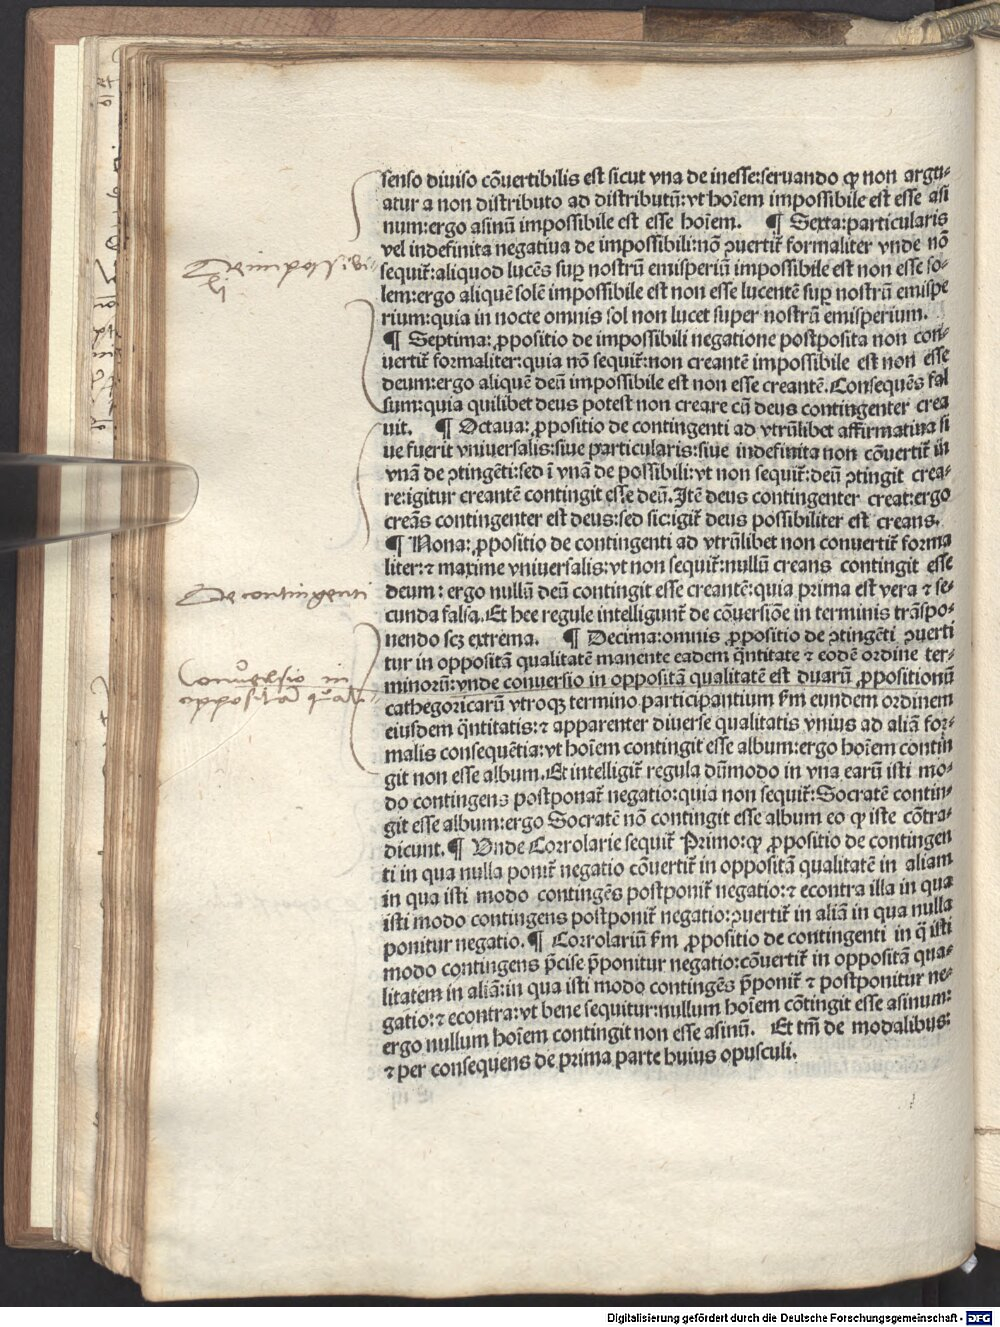 senso diuiso cōuertibilis est sicut vna de inesse:seruando ꝙ non argu⸗
atur a non distributo ad distributū:vt hoīem impossibile est esse asi
num:ergo asinū impossibile est esse hoīem. ¶ Sexta:particularis
vel indefinita negatiua de impossibili:nō ↄuertiť formaliter vnde nō
sequiť:aliquod lucēs suꝑ nostrū emisperiū impossibile est non esse so⸗
lem:ergo aliquē solē impossibile est non esse lucentē suꝑ nostrū emispe
rium:quia in nocte omnis sol non lucet super nostrū emisperium.
¶ Septima:ꝓpositio de impossibili negatione postposita non con⸗
uertiť formaliter:quia nō sequiť:non creantē impossibile est non esse
deum:ergo aliquē deū impossibile est non esse creantē.Consequēs fal
sum:quia quilibet deus potest non creare cū deus contingenter crea
uit. ¶ Octaua:ꝓpositio de contingenti ad vtrūlibet affirmatiua si
ue fuerit vniuersalis:siue particularis:siue indefinita non cōuertiť in
vnā de ↄtingēti:sed ī vnā de possibili:vt non sequiť:deū ↄtingit crea⸗
re:igitur creantē contingit esse deū.Jtē deus contingenter creat:ergo
creās contingenter est deus:sed sic:igiť deus possibiliter est creans.
¶ Nona:ꝓpositio de contingenti ad vtrūlibet non conuertiť forma
liter:⁊ maxime vniuersalis:vt non sequiť:nullū creans contingit esse
deum: ergo nullū deū contingit esse creantē:quia prima est vera ⁊ se⸗
cunda falsa.Et hee regule intelligunť de cōuersiōe in terminis trāspo⸗
nendo scꝫ extrema. ¶ Decima:omnis ꝓpositio de ↄtingēti ↄuerti
tur in oppositā qualitatē manente eadem q̄ntitate ⁊ eodē ordine ter⸗
minorū:vnde conuersio in oppositā qualitatē est duarū ꝓpositionū
cathegoricarū vtroqꝫ termino participantium ẜm eundem ordinem
eiusdem q̄ntitatis:⁊ apparenter diuerse qualitatis vnius ad aliā for⸗
malis consequētia:vt hoīem contingit esse album:ergo hoīem contin
git non esse album.Et intelligiť regula dūmodo in vna earū isti mo⸗
do contingens postponať negatio:quia non sequiť:Socratē contin⸗
git esse album:ergo Socratē nō contingit esse album eo ꝙ iste cōtra⸗
dicunt.¶ Unde Corrolarie sequiť Primo:ꝙ ꝓpositio de contingen
ti in qua nulla poniť negatio cōuertiť in oppositā qualitatē in aliam
in qua isti modo contingēs postponiť negatio:⁊ econtra illa in qua
isti modo contingens postponiť negatio:ↄuertiť in aliā in qua nulla
ponitur negatio.¶ Corrolariū ẜm ꝓpositio de contingenti in q̄ isti
modo contingens p̄cise p̄ponitur negatio:cōuertiť in oppositā qua⸗
litatem in aliā:in qua isti modo contingēs p̄poniť ⁊ postponitur ne⸗
gatio:⁊ econtra:vt bene sequitur:nullum hoīem cōtingit esse asinum:
ergo nullum hoīem contingit non esse asinū. Et tm̄ de modalibus:
⁊ per consequens de prima parte huius opusculi.
De contingenti
Conuersio in
oppositam
Digitalisierung gefördert durch die Deutsche Forschungsgemeinschaft - DFG